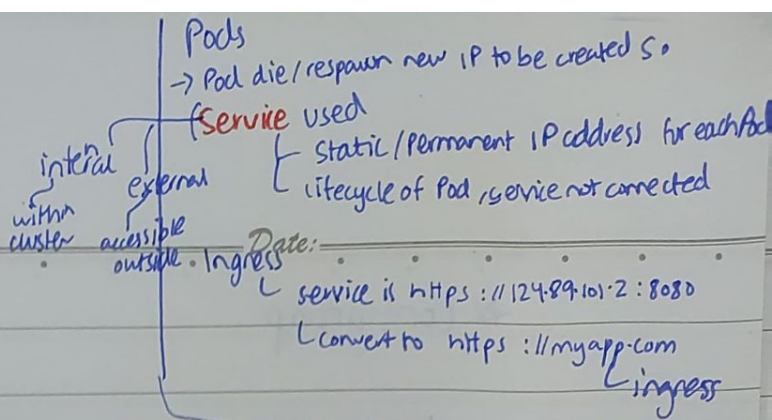 Pods
→ Pod die/respawn new IP to be created so
Service used
Static/Permanent IP address for each Pod
Lifecycle of Pod, service not connected
internal
within cluster
external
accessible outside
Date:
Ingress
service is https://124.89.101.2:8080
convert to https://myapp.com
ingress